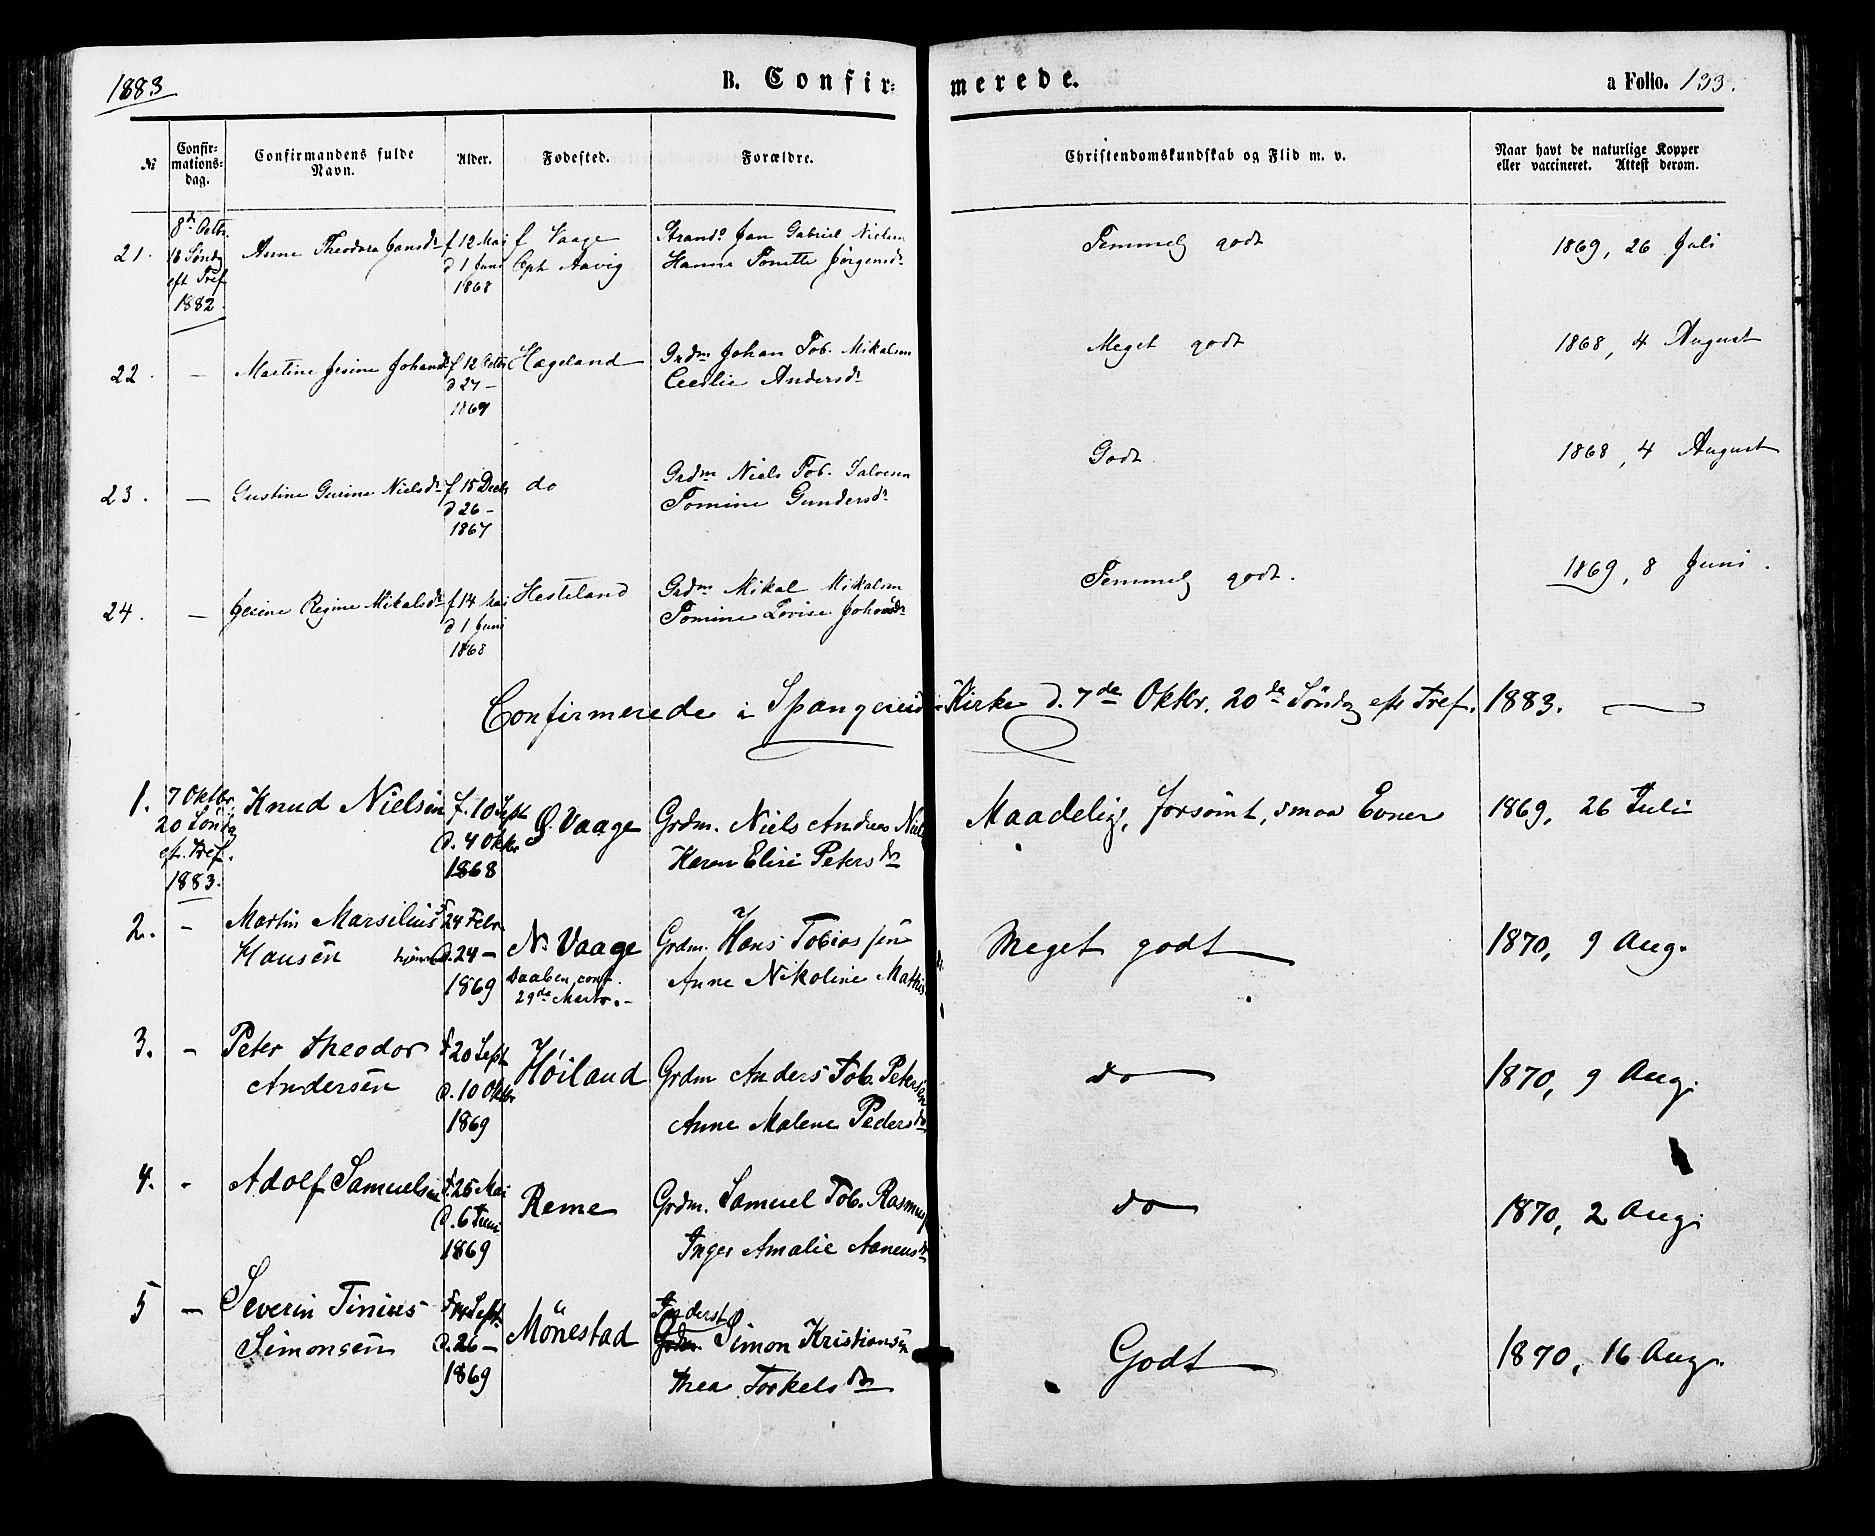 1883
B. Confirmerede.
a Folio. 133.
№
Confirmations-dag.
Confirmandens fulde Navn.
Alder.
Fødested.
Forældre.
Christendomskundskab og Flid m. v.
Naar havt de naturlige Kopper eller vaccineret. Attest derom.
21.
8d Octbr.
18 Sønd
eft Tref
1882.
Anne Theodora Jansdr
f 12 Mai
d 1 Juni
1868
f Vaage
Opt Aavig
Strands Jan Gabriel Nielsen
Hanne Tonette Jørgensdr
Temmelg godt
1869, 26 Juli
22. –
Martine Jesine Johansdr
f 12 Octbr
d 24 –
1869
Hageland
Grdm Johan Tob. Mikalsen
Cecilie Andersdr
Meget godt
1868, 4 August
23. –
Gustine Gurine Nielsdr
f 15 Decbr
d 26 –
1867
do
Grdm Niels Tob. Salvesen
Tomine Gundersdr
Godt
1868, 4 August
24. –
Jesine Regine Mikalsdr
f 14 Mai
d 1 Juni
1868
Hesteland
Grdm Mikal Mikalsen
Tomine Lovise Johansdr
Temmelg godt.
1869, 8 Juni.
Confirmerede i Spangereid Kirke d. 7de Oktbr. 20de Søndg eft Tref. 1883. –
1.
7 Oktbr.
20 Søndg
eft. Tref.
1883.
Knud Nielsen
f. 10 Sept
d. 4 Oktbr
1868
S. Vaage
Grdm. Niels Andreas Niels
Karen Elise Petersdr
Maadelig, forsømt, smaa Evner
1869, 26 Juli
2. –
Martin Marsilius
Hansen
f 24 Febr.
d. 24 –
1869
N. Vaage
Daaben conf.
29de Marts. –
Grdm. Hans Tobiassen
Anne Nikoline Mathis
Meget godt
1870, 9 Aug.
3. –
Peter Theodor
Andersen
f 20 Sept
d. 10 Oktbr
1869
Høiland
Grdm Anders Tob. Petersen
Anne Malene Pedersdr
do
1870, 9 Aug.
4. -
Adolf Samuelsen
f. 25 Mai
d. 6 Juni
1869
Reme
Grdm. Samuel Tob. Rasmuss
Inger Amalie Aanensdr
do
1870, 2 Aug.
5 –
Severin Tinius
Simonsen
f 14 Sept.
d. 26 –
1869
Mönestad
Inderst
Grdm. Simon Kristiansen
Thea Torkelsdr
Godt
1870, 16 Aug.